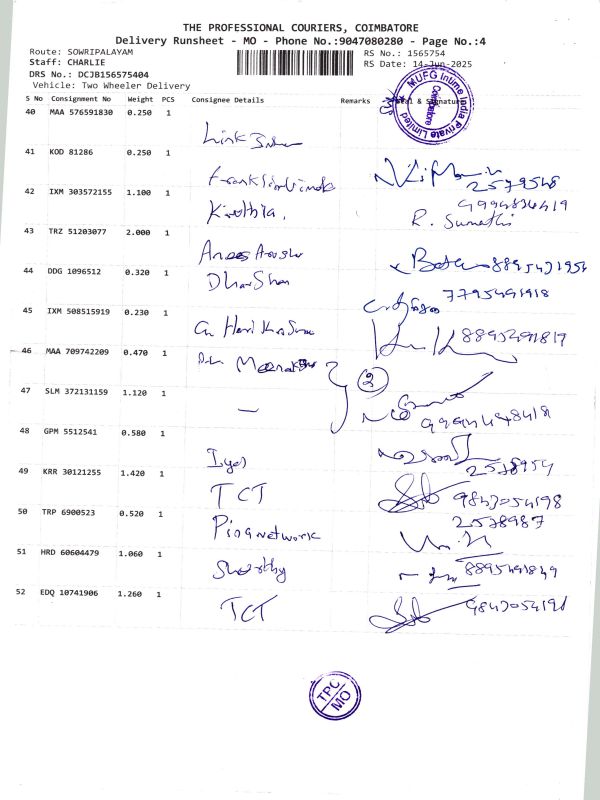 THE PROFESSIONAL COURIERS, COIMBATORE
Delivery Runsheet - MO - Phone No.:9047080280 - Page No.:4
Route: SOWRIPALAYAM RS No.: 1565754
Staff: CHARLIE RS Date: 14-Jun-2025
DRS No.: DCJB156575404
Vehicle: Two Wheeler Delivery
MUFG Intime India Private Limited
Coimbatore
S No Consignment No Weight PCS Consignee Details Remarks Seal & Signature
40 MAA 576591830 0.250 1
Link
41 KOD 81286 0.250 1
2579548
42 IXM 303572155 1.100 1
Kiruthika, R. Sumathi
43 TRZ 51203077 2.000 1
44 DDG 1096512 0.320 1
Dharshan 7795491918
45 IXM 508515919 0.230 1
G Hari 8895491819
46 MAA 709742209 0.470 1
2
47 SLM 372131159 1.120 1
—
48 GPM 5512541 0.580 1
49 KRR 30121255 1.420 1
TCT 9843054198
50 TRP 6900523 0.520 1
Pinanetwork 2578987
51 HRD 60604479 1.060 1
8895491849
52 EDQ 10741906 1.260 1
TCT
TPC
MO